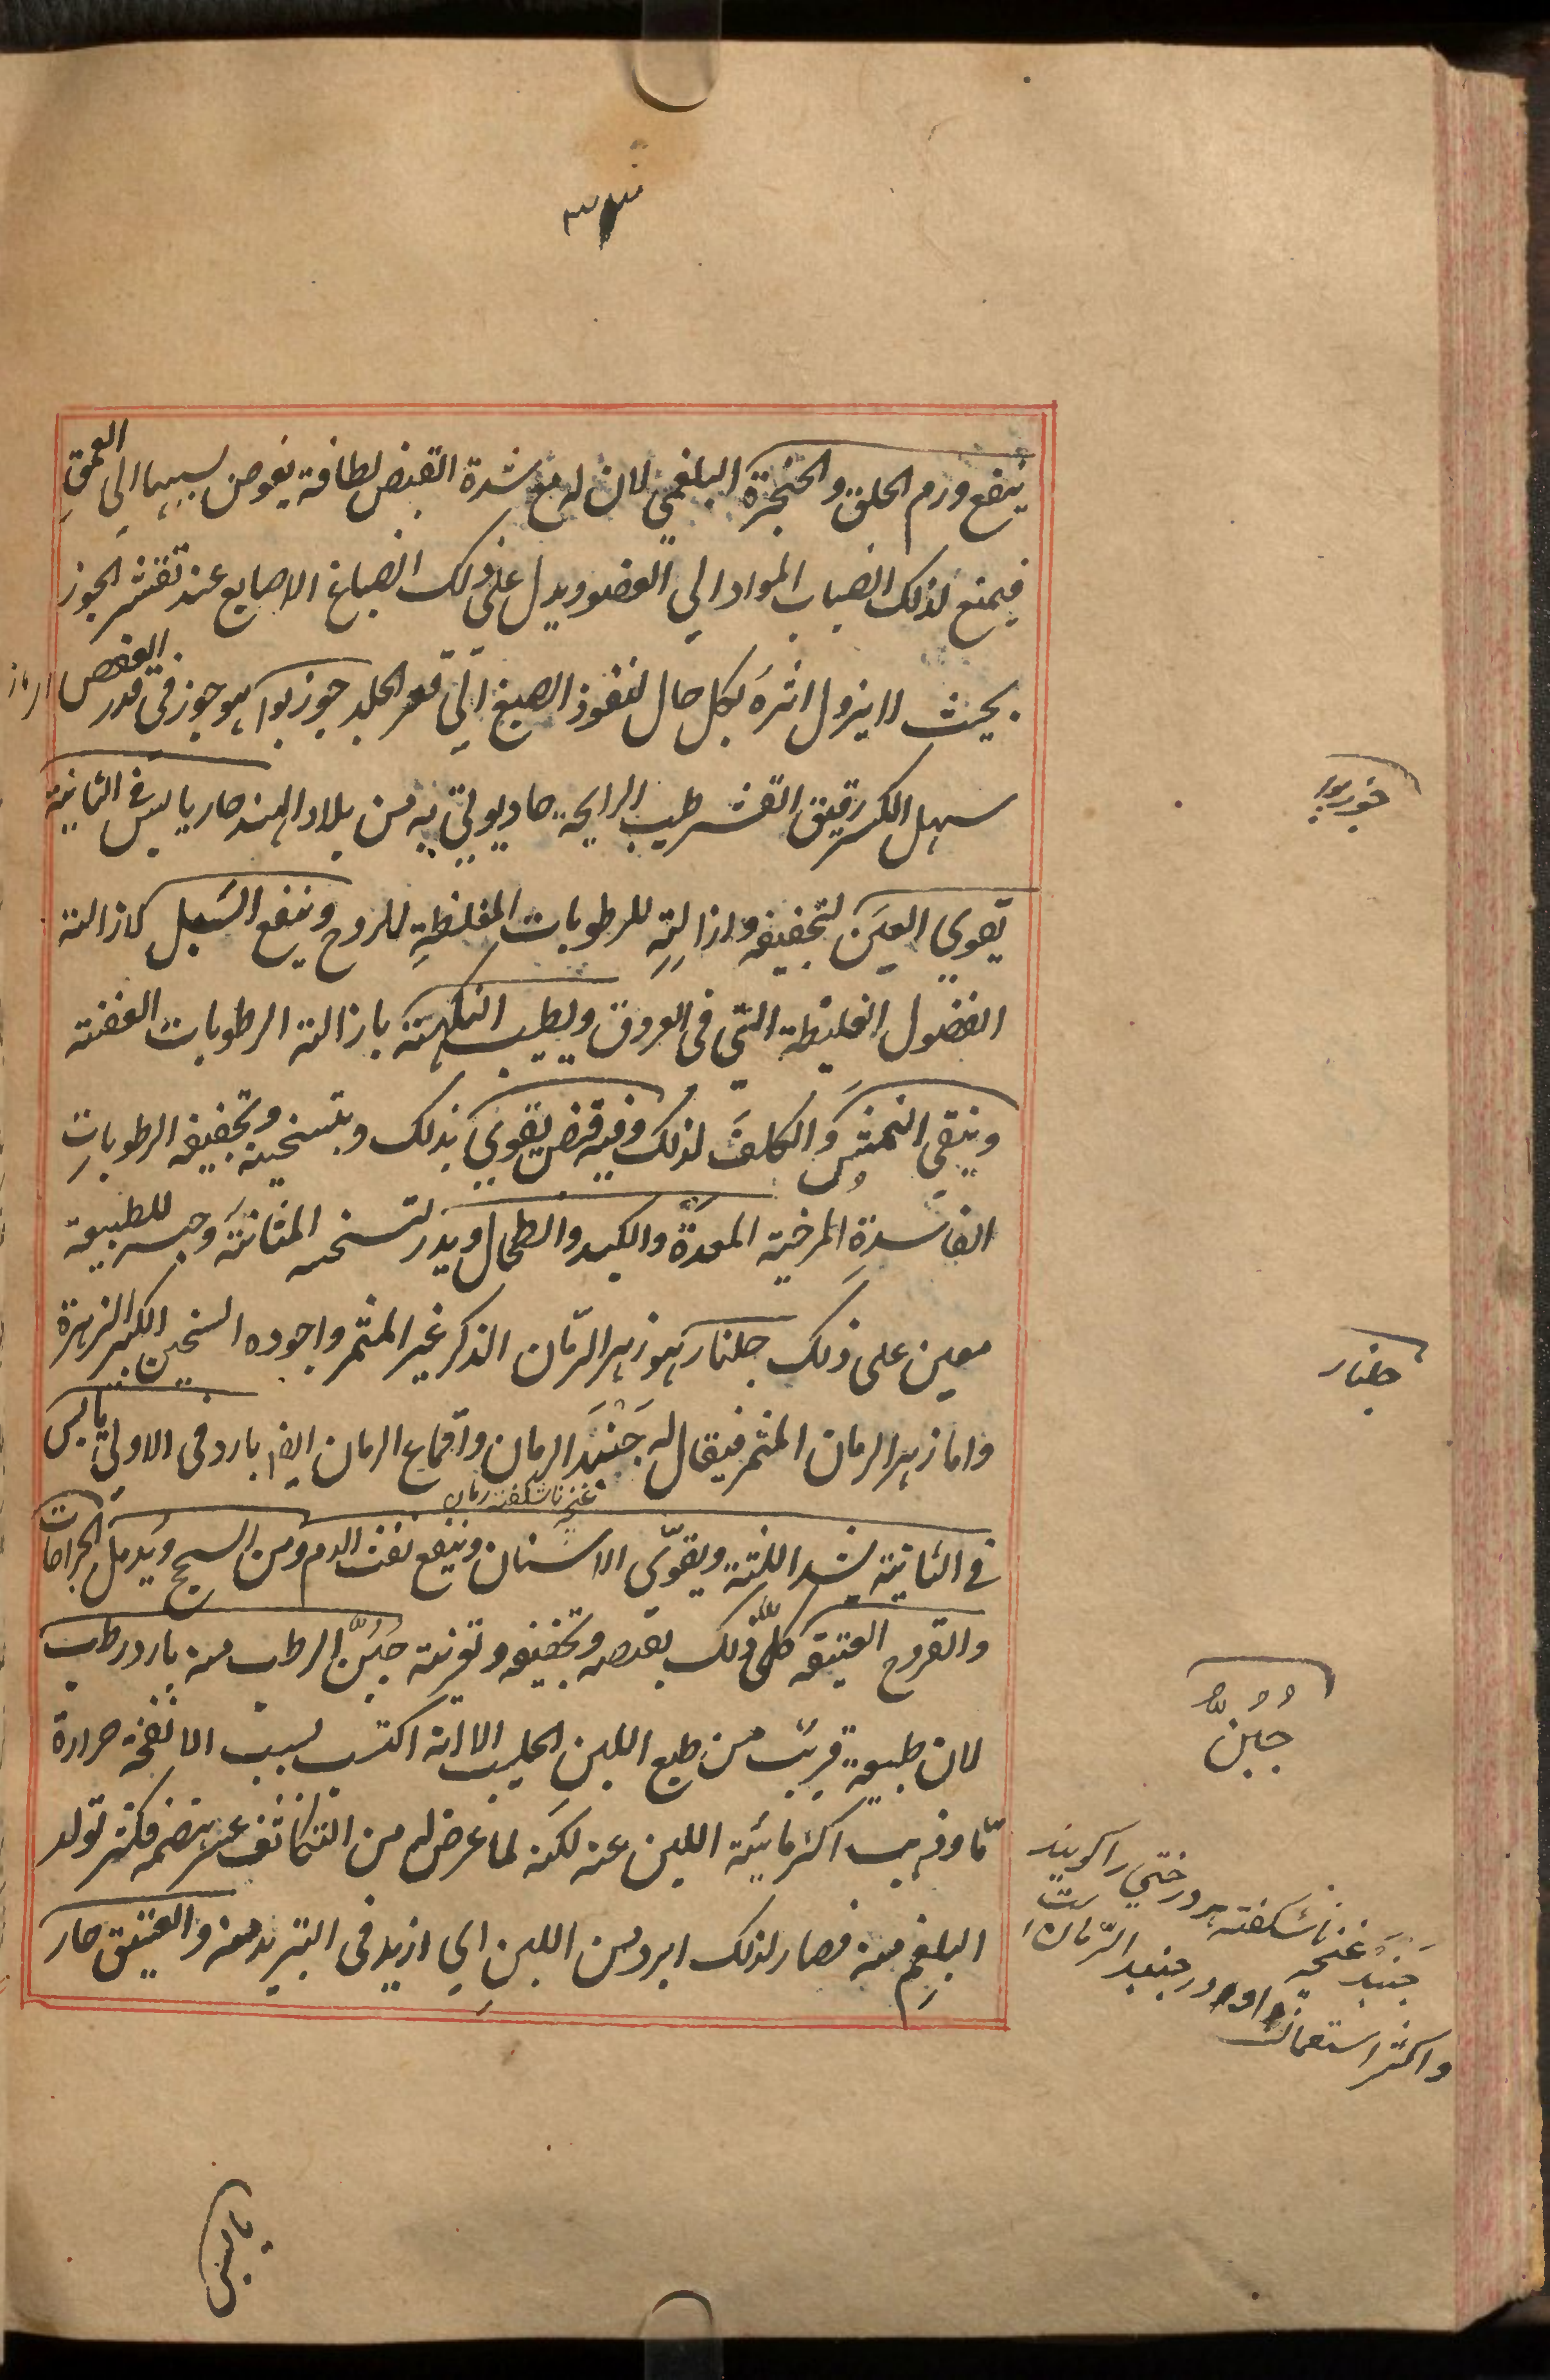 ينفع ورم الحلق والحنجرة البلغمي لان له مع شدة القبض لطافة يغوص بسببها الى العمق
فيمنع لذلك انصباب المواد الي العضو ويدل على ذلك انصباغ الاصابع عند تقشر الجوز
بحيث لا يزول اثره بكل حال لنفوذ الصبغ الي قعر الجلد جوزبوا هو جوز فى قدر العفص
سهل الكسر رقيق القشر طيب الرايحة حاد يوتي به من بلاد الهند حار يابس فى الثانية
جوزبوا
يقوي العين لتجفيفه وازالته للرطوبات المغلظة للروح وينفع السبل لازالته
الفضول الغليظة التي فى العروق ويطيب النكهة بازالته الرطوبات العفنة
وينقي النمش والكلف لذلك وفيه قبض يقوي بذلك وبتسخينه وتجفيفه الرطوبات
الفاسدة المرخية المعدة والكبد والطحال ويدر لتسخينه المثانة وحبسه للطبيعة
معين على ذلك جلنار هو زهر الرمان الذكر غير المثمر واجوده السخين الكبير الزهرة
جلنار
واما زهر الرمان المثمر فيقال له جنبد الرمان واقماع الرمان ايضا بارد فى الاولى يابس
غنچه ناشكفته رمان
فى الثانية يشد اللثة ويقوّي الاسنان وينفع نفث الدم ومن السحج ويدمل الجراحات
والقروح العتيقة كلّ ذلك بقبضه وتجفيفه وتغريته جُبُنّ الرطب منه بارد رطب
جُبُنّ
لان طبيعته قريب من طبع اللبن الحليب الا انه اكتسب بسبب الانفحة حرارة
مّا وذهب اكثر مائية اللبن عنه لكنه لما عرض له من التكاثف عسر هضمه فكثر تولد
البلغم منه فصار لذلك ابرد من اللبن اي ازيد فى التبريد منه والعتيق حار
جنبد غنچه ناشكفته هر درختي را كويند
واكثر استعمال او در جنبد الرّمان است
يابس